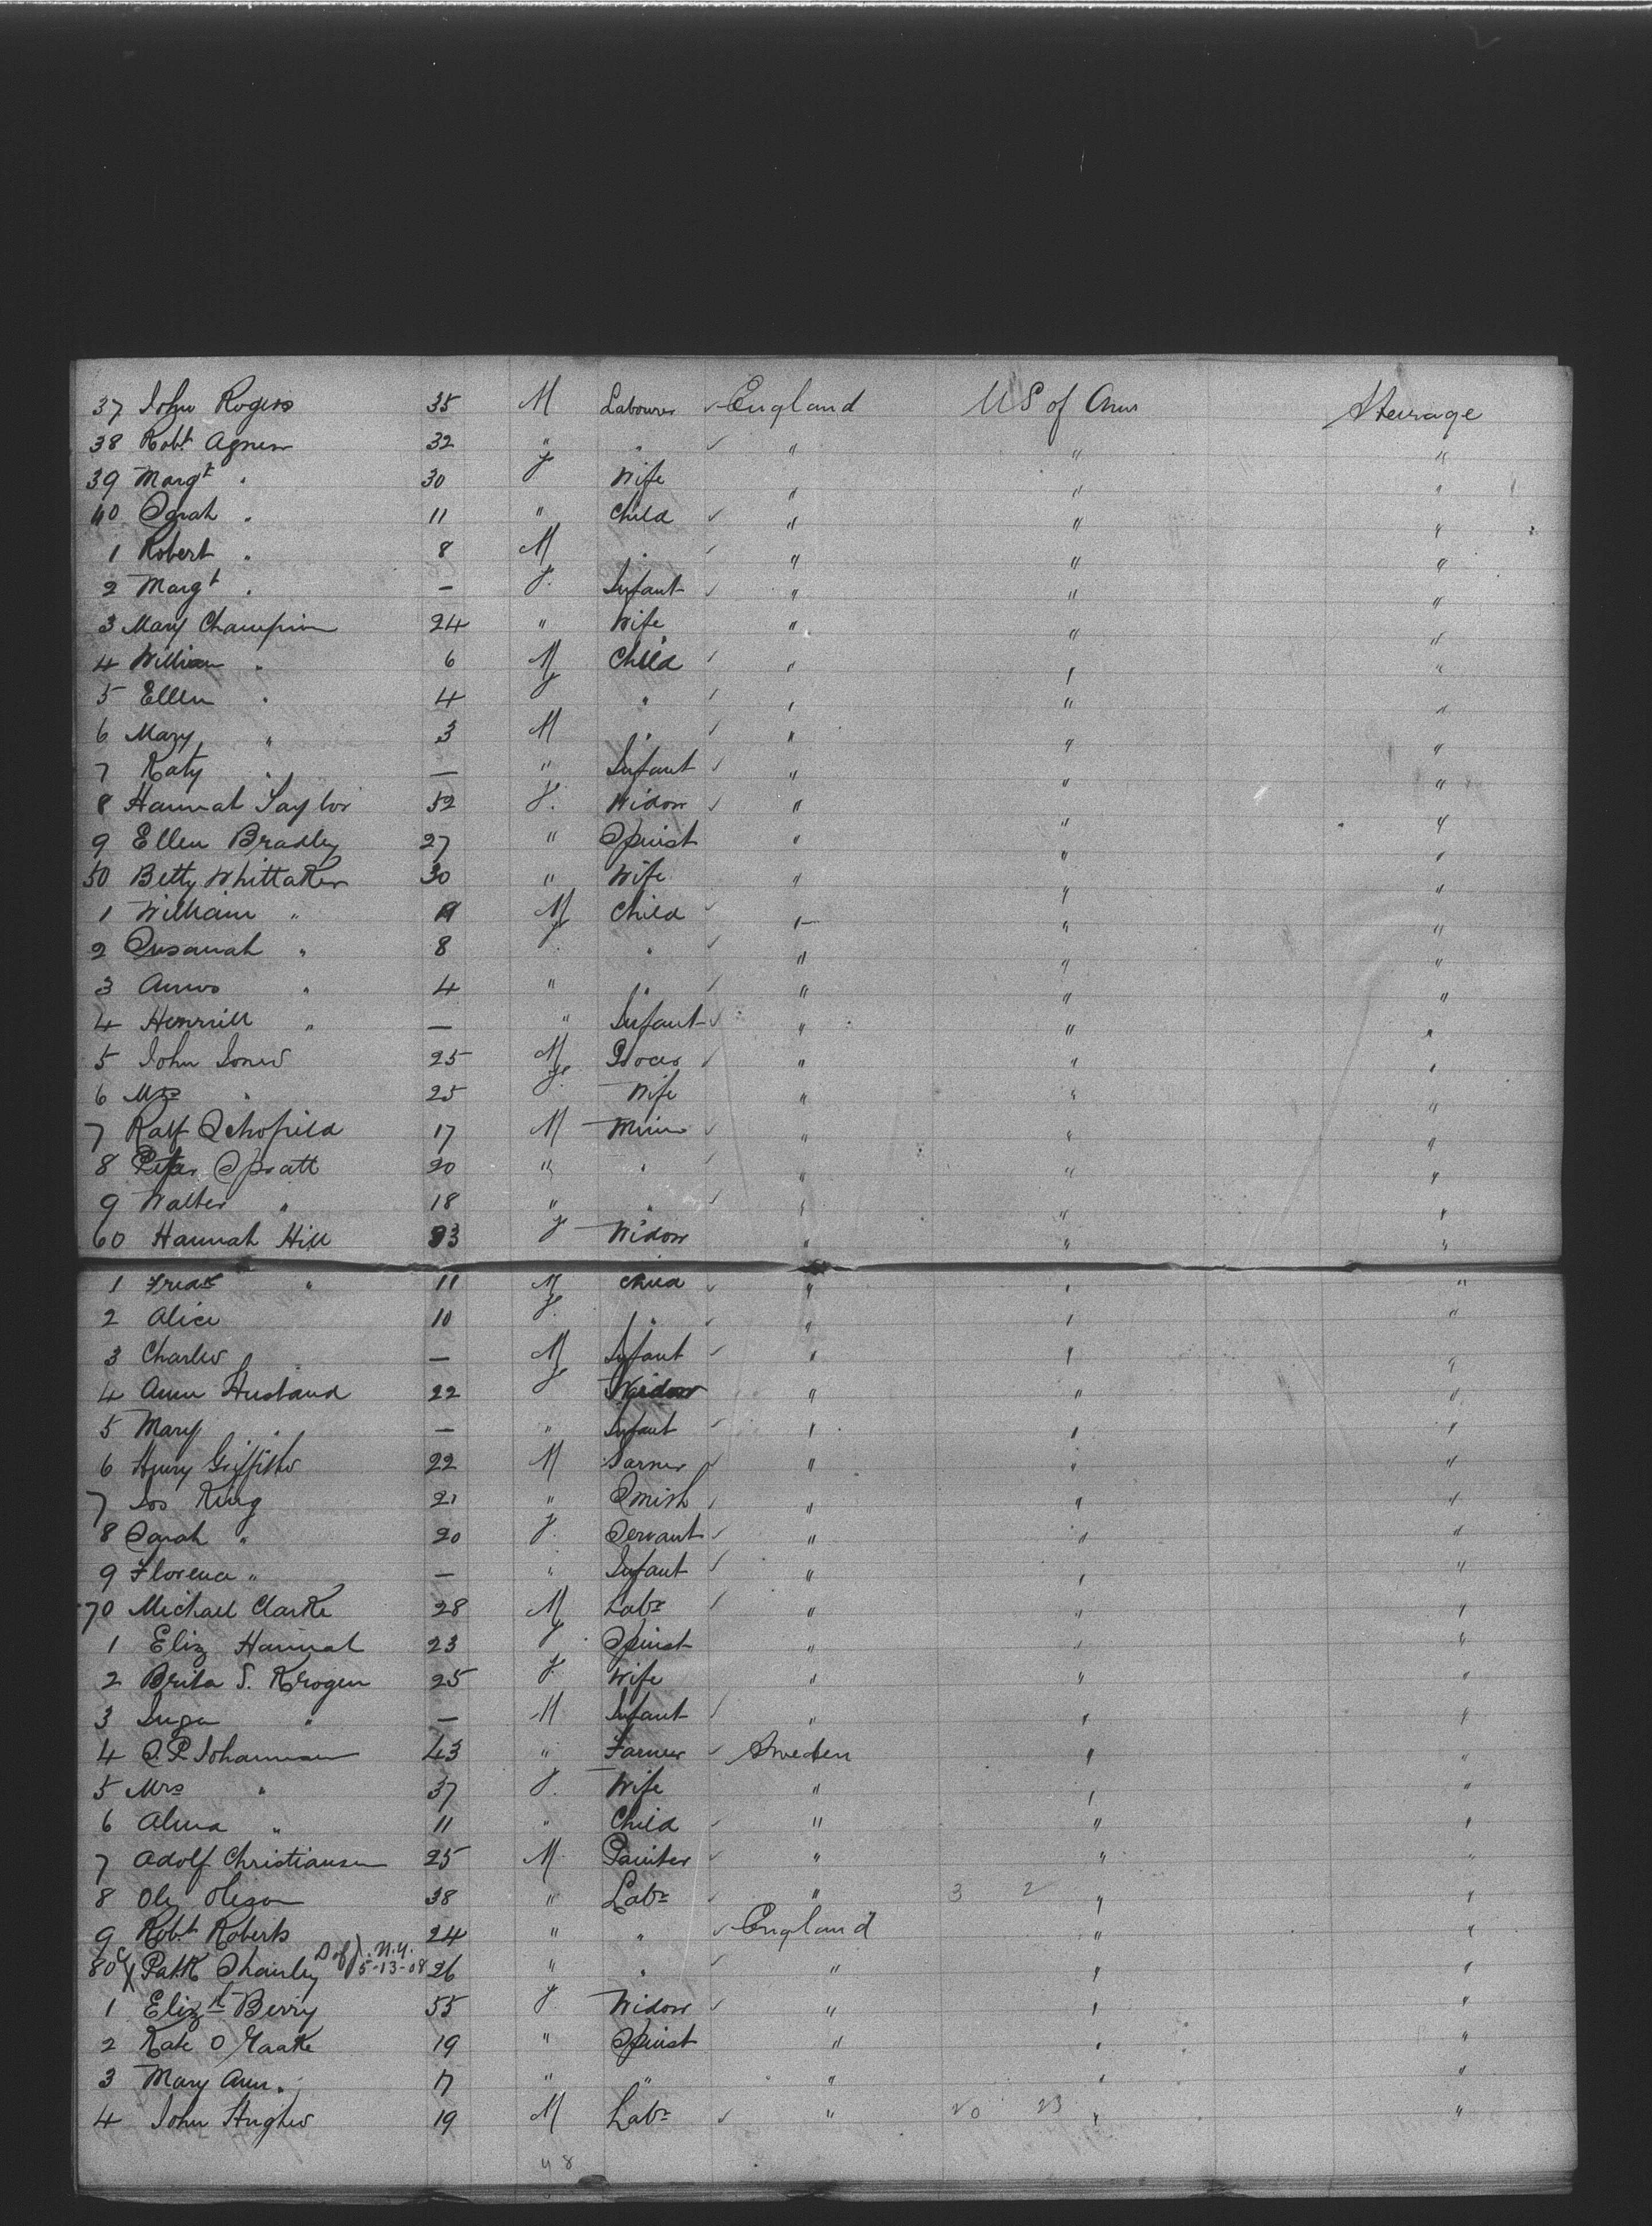 37 John Rogers 35 M Labourer ✓ England US of Amr Steerage
38 Robt Agnew 32 " " ✓ " " "
39 Margt " 30 F Wife " " "
40 Sarah " 11 " Child ✓ " " "
1 Robert " 8 M " ✓ " " "
2 Margt " — F. Infant ✓ " " "
3 Mary Champion 24 " Wife " " "
4 William " 6 M Child ✓ " " "
5 Ellen " 4 F " ✓ " " "
6 Mary " 3 M " ✓ " " "
7 Katy " — " Infant ✓ " " "
8 Hannah Taylor 52 F. Widow ✓ " " "
9 Ellen Bradley 27 " Spinst " " "
50 Betty Whittaker 30 " Wife " " "
1 William " M Child ✓ " " "
2 Susanah " 8 F " ✓ " " "
3 Amos " 4 " " ✓ " " "
4 " — " Infant ✓ " " "
5 John Jones 25 M Grocer ✓ " " "
6 Mrs " 25 F. Wife " " "
7 Ralf Schofield 17 M Miner ✓ " " "
8 Peter Spratt 20 " " ✓ " " "
9 Walter " 18 " " ✓ " " "
60 Hannah Hill 33 F Widow " " "
1 Fredk " 11 M Child ✓ " " "
2 Alice 10 F. " ✓ " " "
3 Charles " — M Infant ✓ " " "
4 Ann Husband 22 F Widow " " "
5 Mary " — " Infant ✓ " " "
6 Henry Griffiths 22 M Farmer ✓ " " "
7 Jos King 21 " Smith ✓ " " "
8 Sarah " 20 F. Servant ✓ " " "
9 Florence " — " Infant ✓ " " "
70 Michael Clarke 28 M Labr ✓ " " "
1 Eliz Hannah 23 F. Spinst " " "
2 Brita S. Krogen 25 F. Wife " " "
3 Inga " — M Infant ✓ " " "
4 S.P. Johannsen 43 " Farmer ✓ Sweden " "
5 Mrs " 37 F. Wife " " "
6 Alma " 11 " Child ✓ " " "
7 Adolf Christiansen 25 M Painter ✓ " " "
8 Ole Olegon 38 " Labr ✓ " 3 2 " "
9 Robt Roberts 24 " " ✓ England " "
80 Patk 26 " " ✓ " " "
N.Y. 5-13-08
1 Elizth Berry 55 F Widow ✓ " " "
2 Kate O 19 " Spinst " " "
3 Mary Ann " 17 " " " " "
4 John Hughes 19 M Labr ✓ " 20 23 " "
48